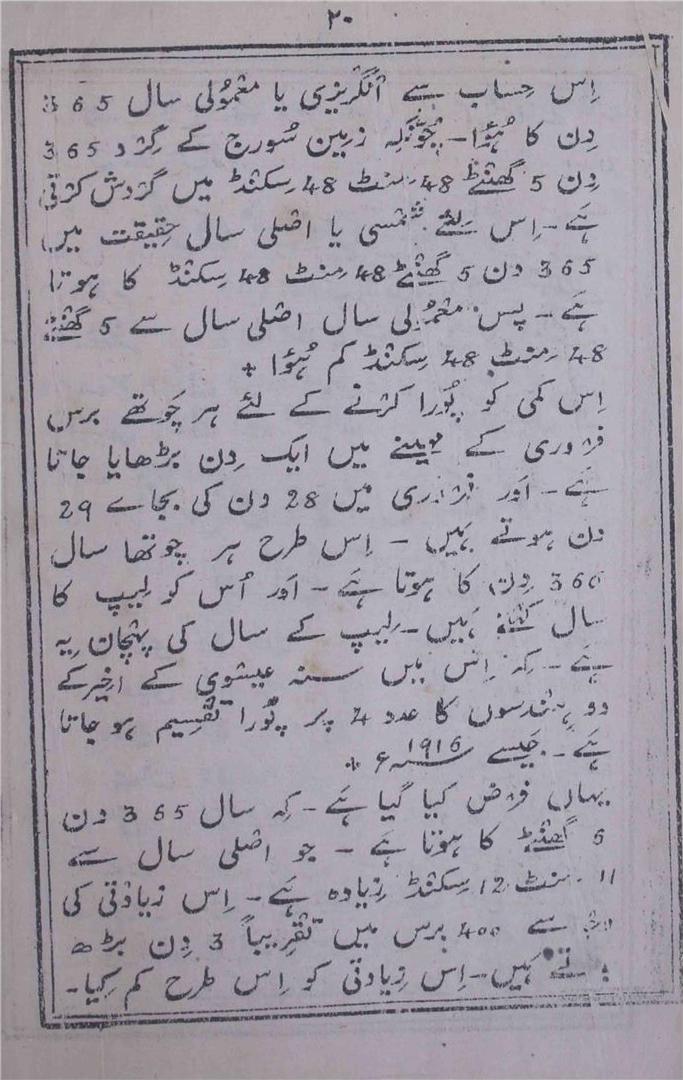 ۲۰
اِس حِساب سے انگریزی یا معمُولی سال 365
دِن کا ہُؤا۔ چُونکہ زمین سُورج کے گِرد 365
دِن 5 گھنٹے 48 مِنٹ 48 سِکنڈ میں گردش کرتی
ہَے۔ اِس لئے شمسی یا اصلی سال حقِیقت میں
365 دن 5 گھنٹے 48 مِنٹ 48 سِکنڈ کا ہوتا
ہَے۔ پس معمُولی سال اصلی سال سے 5 گھنٹے
48 مِنٹ 48 سِکنڈ کم ہُؤا +
اِس کمی کو پُورا کرنے کے لئے ہر چَوتھے برس
فروری کے مہینے میں ایک دِن بڑھایا جاتا
ہَے۔ اَور فروری میں 28 دن کی بجاے 29
دن ہوتے ہَیں ۔ اِس طرح ہر چوتھا سال
366 دِن کا ہوتا ہَے۔ اَور اُس کو لِیپ کا
سال کہتے ہَیں۔ لِیپ کے سال کی پہچان یِہ
ہَے۔ کہ اِس میں سنہ عیسوی کے اخِیر کے
دو ہِندسوں کا عدد 4 پر پُورا تقسِیم ہو جاتا
ہَے۔ جَیسے سنہ ۱۹۱۶ء +
یہاں فرض کیا گیا ہَے۔ کہ سال 365 دن
6 گھنٹے کا ہوتا ہَے ۔ جو اصلی سال سے
11 مِنٹ 12 سِکنڈ زِیادہ ہَے۔ اِس زیادتی کی
سے 400 برس میں تقرِیباً 3 دِن بڑھ
تے ہَیں۔ اِس زِیادتی کو اِس طرح کم کِیا۔